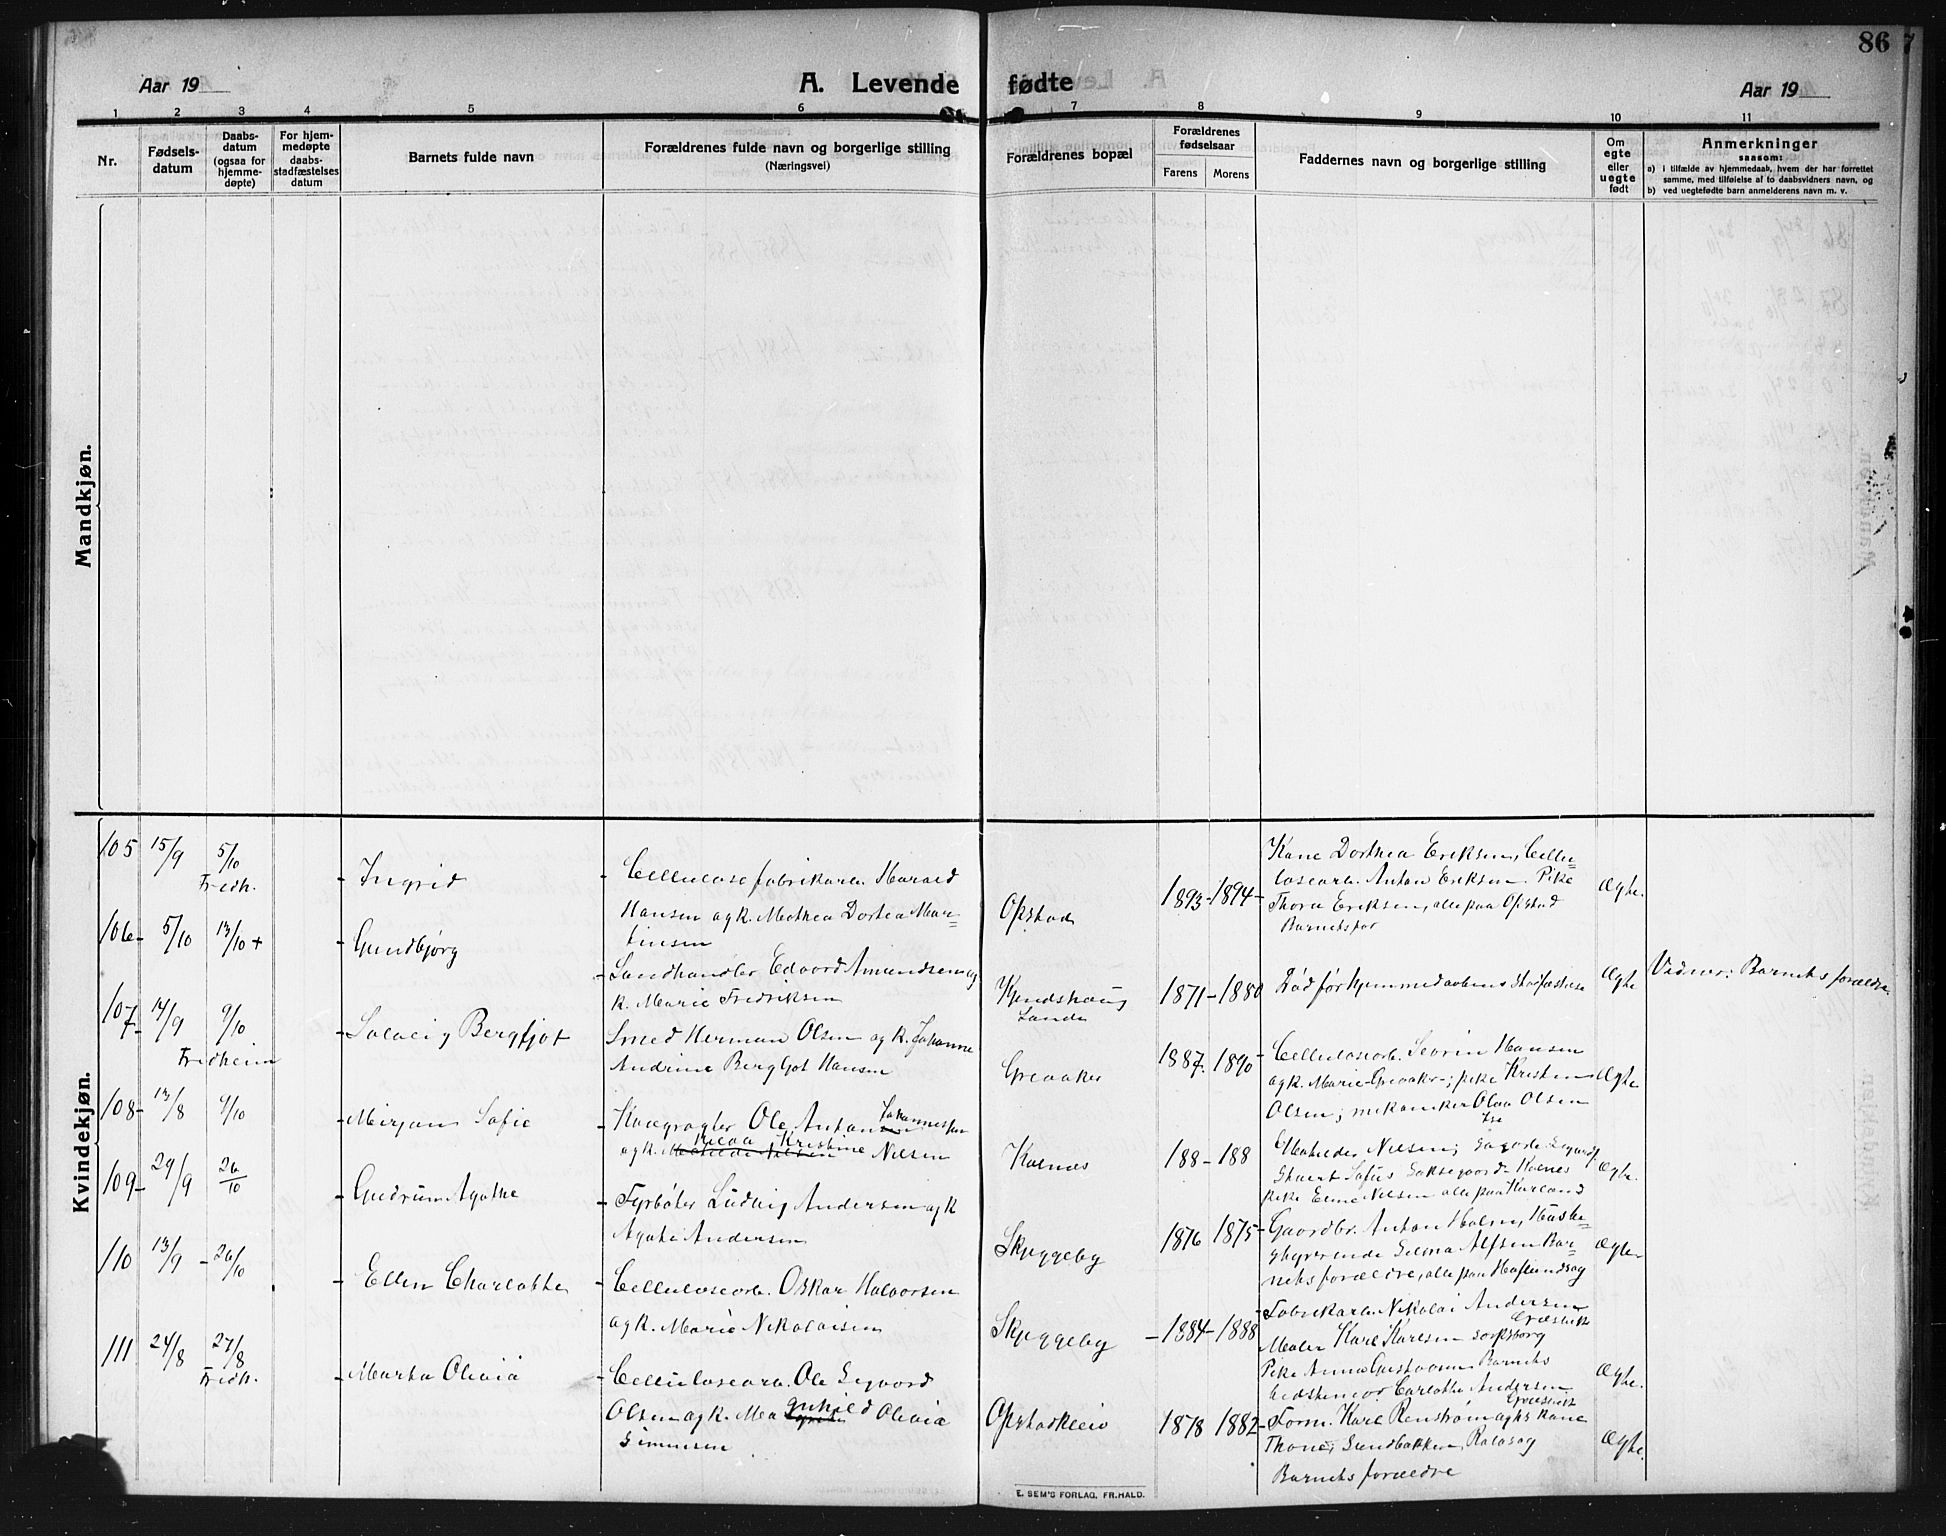 86
Aar 19
A. Levende fødte
Aar 19
1 2 3 4 5 6 7 8 9 10 11
Nr.
Fødsels-
datum
Daabs-
datum
(ogsaa for
hjemme-
døpte)
For hjem-
medøpte
daabs-
stadfæstelses
datum
Barnets fulde navn
Forældrenes fulde navn og borgerlige stilling
(Næringsvei)
Forældrenes bopæl
Forældrenes
fødselsaar
Farens Morens
Faddernes navn og borgerlige stilling
Om
egte
eller
uegte
født
Anmerkninger
saasom:
a) i tilfælde av hjemmedaab, hvem der har forrettet
samme, med tilføielse af to daabsvidners navn, og
b) ved uegtefødte barn anmelderens navn m. v.
Mandkjøn.
Kvindekjøn.
105 15/9 5/10
Fredh.
Ingrid
Cellulosefabrikarb. Harald
Hansen og k. Mathea Dortea Mar-
tinsen
Opstad
1893 - 1894
Kone Dorthea Eriksen, Cellu-
losearb. Anton Eriksen. Pike
Thora Eriksen, alle paa Opstad
Barnets far
Ægte.
106 - 5/10 13/10 +
Gundbjørg
Landhandler Edvard Amundsen og
k. Marie Fredriksen
Lande
1871 - 1880
Ægte
Vidner: Barnets forældre.
107 - 14/9 9/10
Fridheim
Solveig Bergljot
Smed Herman Olsen og k. Johanne
Andrine Bergljot Hansen
Greaaker
1887 - 1890
Cellulosearb. Severin Hansen
og k. Marie - Greaaker -; pike Kristin
Olsen; mekaniker Olaf Olsen
Ægte
108 - 13/8 9/10
Mirjam Sofie
Ole Anton Johannessen
og k. Kristine Nilsen
Kalnes
188 - 188
Nilsen;
pike Nilsen alle paa Kurland
Ægte.
109 - 29/9 26/10
Gudrun Agathe
Fyrbøter Ludvig Andersen og k
Agate Andersen
Skjeggeby
1876 1875 -
Gaardbr. Anton Holm, Husbe-
styrerinde Selma Alfsen Bar-
nets forældre, alle paa Hafslundsøy
Ægte
110 13/9 - 26/10
Ellen Charlotte
Cellulosearb. Oskar Halvorsen
og k. Marie Nikolaisen
Skjeggeby
- 1884 - 1888
Fabrikarb. Nikolai Andersen
Maler Karl Karlsen Sarpsborg
Pike Anna Gustavsen Barnets
bedstemor Carlotte Andersen
Ægte.
111 24/8 27/8
Fredh.
Marta Olivia
Cellulosearb. Ole Sigvard
Olsen og k. Olivia
Simensen
1878 1882 -
Form. Karl Renstrøm og hs kone
Thone, Sundbakken, Rolvsøy
Barnets forældre
Ægte.
E. SEM'S FORLAG, FR.HALD.